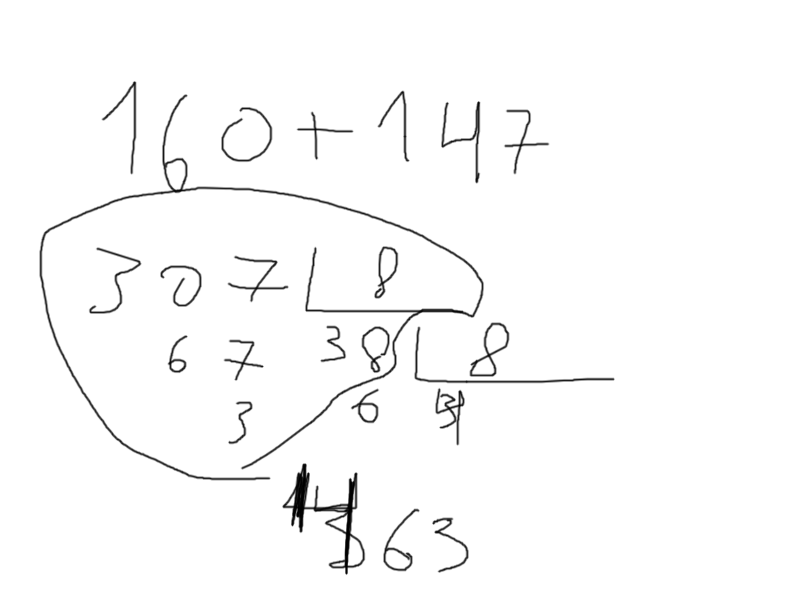 160+147
307 8
67 38 8
3 6
63